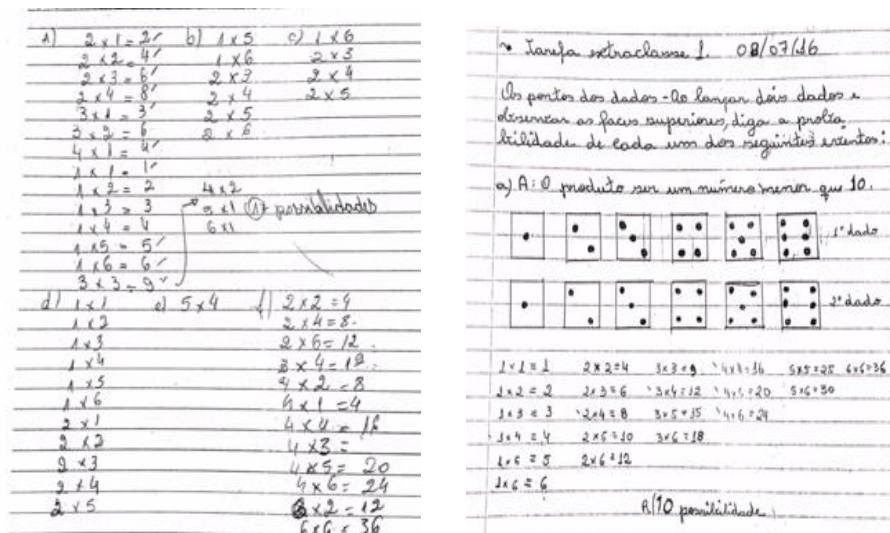 A) 2 x 1 = 2
2 x 2 = 4
2 x 3 = 6
2 x 4 = 8
3 x 1 = 3
3 x 2 = 6
4 x 1 = 4
1 x 1 = 1
1 x 2 = 2
1 x 3 = 3
1 x 4 = 4
1 x 5 = 5
1 x 6 = 6
3 x 3 = 9
4 x 2
5 x 1 17 possibilidades
6 x 1
b) 1 x 5
1 x 6
2 x 3
2 x 4
2 x 5
2 x 6
c) 1 x 6
2 x 3
2 x 4
2 x 5
d) 1 x 1
1 x 2
1 x 3
1 x 4
1 x 5
1 x 6
2 x 1
2 x 2
2 x 3
2 x 4
2 x 5
e) 5 x 4
f) 2 x 2 = 4
2 x 4 = 8
2 x 6 = 12
3 x 4 = 12
4 x 2 = 8
4 x 1 = 4
4 x 4 = 16
4 x 3 =
4 x 5 = 20
4 x 6 = 24
x 2 = 12
6 x 6 = 36
Tarefa extraclasse 1. 08/07/16
Os pontos dos dados - Ao lançar dois dados e
observar as faces superiores, diga a proba
bilidade de cada um dos seguintes eventos:
a) A: O produto ser um número menor que 10.
1º dado
2º dado
1x1=1 2x2=4 3x3=9 4x4=16 5x5=25 6x6=36
1x2=2 2x3=6 3x4=12 4x5=20 5x6=30
1x3=3 2x4=8 3x5=15 4x6=24
1x4=4 2x5=10 3x6=18
1x5=5 2x6=12
1x6=6
R/10 possibilidade